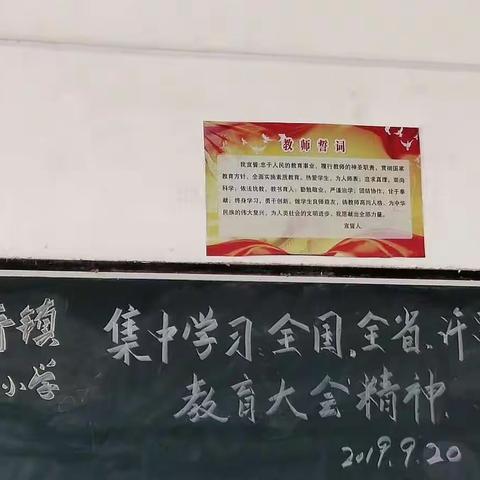 教师誓词
我宣誓:忠于人民的教育事业,履行教师的神圣职责,贯彻国家
教育方针,全面实施素质教育,热爱学生,为人师表;追求真理,崇尚
科学;依法执教,教书育人;勤勉敬业,严谨治学;团结协作,甘于奉
献;终身学习,勇于创新,做学生良师益友,铸教师高尚人格,为中华
民族的伟大复兴,为人类社会的文明进步,我愿献出全部力量。
宣誓人:
镇
小学
集中学习全国、全省、许
教育大会精神
2019.9.20